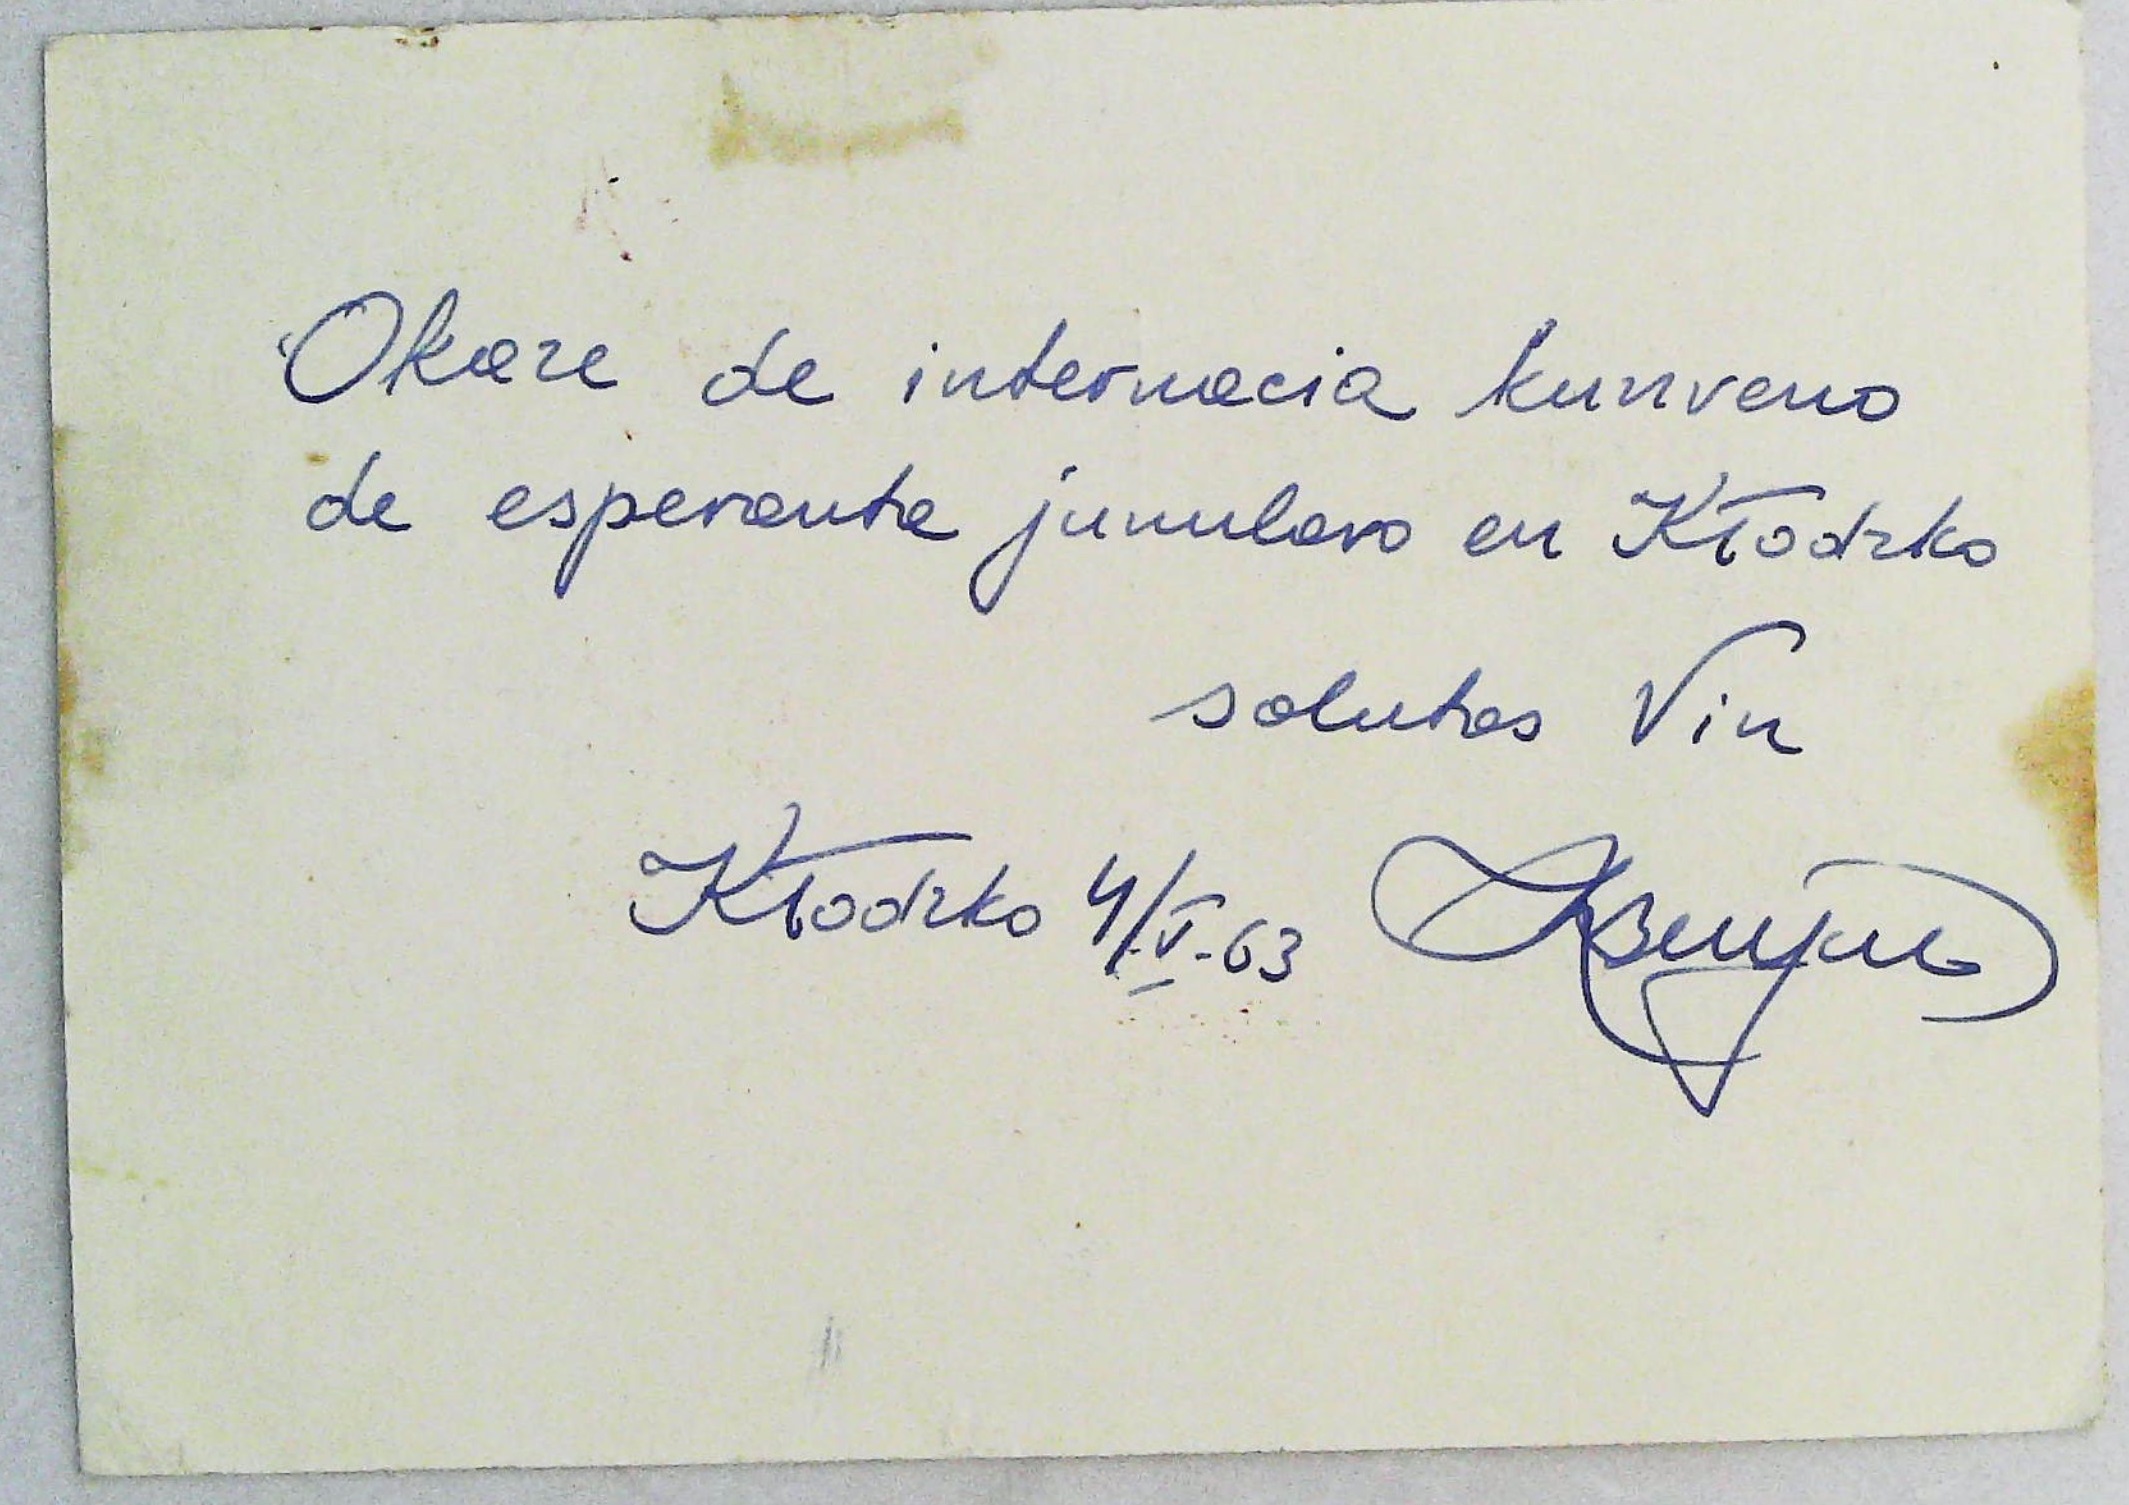 Okaze de internacia kunveno
de esperanta junularo en Kłodzko
salutas Vin
Kłodzko 4/V-63